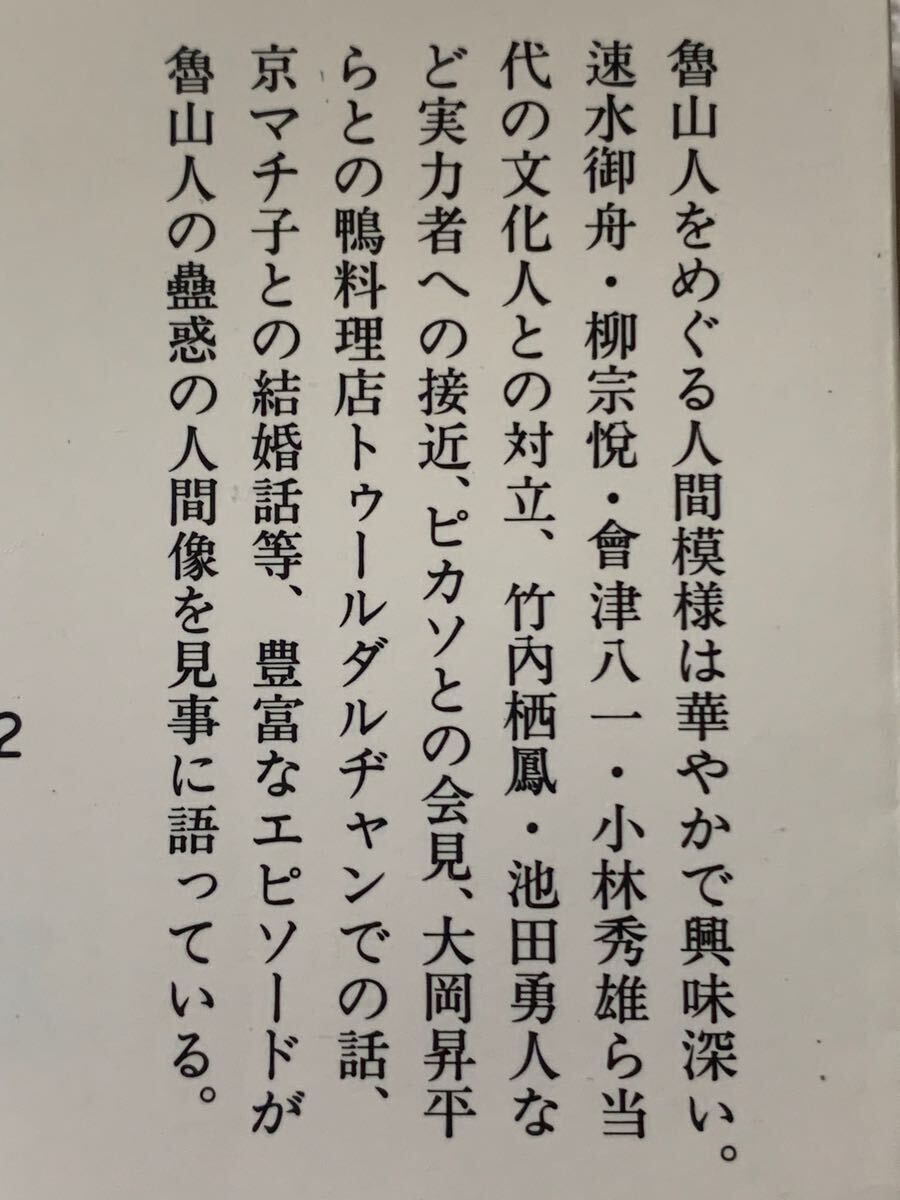 魯山人をめぐる人間模様は華やかで興味深い。
速水御舟・柳宗悦・會津八一・小林秀雄ら当
代の文化人との対立、竹內栖鳳・池田勇人な
ど実力者への接近、ピカソとの会見、大岡昇平
らとの鴨料理店トゥールダルヂャンでの話、
京マチ子との結婚話等、豊富なエピソードが
魯山人の蠱惑の人間像を見事に語っている。
2